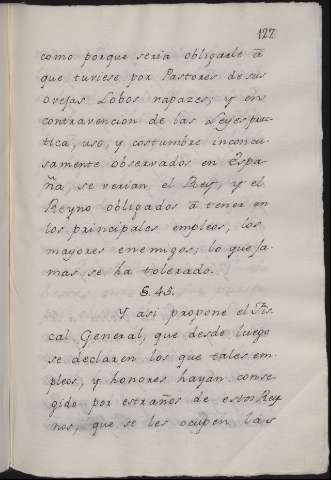 127
como porque seria obligarle â
que tuviese por Pastores de sus
ovejas Lobos rapazes; y en
contravencion de las Leyes prac-
tica, uso, y costumbre inconcu-
samente observados en Espa-
ña, se verian el Rey, y el
Reyno obligados â tener en
los principales empleos, los
mayores enemigos, lo que ja-
mas se ha tolerado.
§. 45.
Y asi propone el Fis-
cal General, que desde luego
se declaren los que tales em-
pleos, y honores hayan conse-
gido por estraños de estos Rey
nos, que se les ocupen las